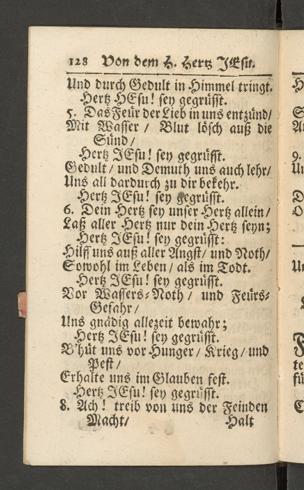 128 Von dem H. Hertz JEsu.
Und durch Gedult in Himmel tringt.
Hertz HEsu! sey gegrüsst.
5. Das Feür der Lieb in uns entzünd/
Mit Wasser / Blut lösch auß die
Sünd/
Hertz JEsu! sey gegrüsst.
Gedult/ und Demuth uns auch lehr/
Uns all dardurch zu dir bekehr.
Hertz JEsu! sey gegrüsst.
6. Dein Hertz sey unser Hertz allein/
Laß aller Hertz nur dein Hertz seyn;
Hertz JEsu! sey gegrüsst:
Hilff uns auß aller Angst/ und Noth/
Sowohl im Leben/ als im Todt.
Hertz JEsu! sey gegrüsst.
Vor Wassers-Noth / und Feürs-
Gefahr/
Uns gnädig allezeit bewahr;
Hertz JEsu! sey gegrüsst.
B'hüt uns vor Hunger/ Krieg/ und
Pest/
Erhalte uns im Glauben fest.
Hertz JEsu! sey gegrüsst.
8. Ach! treib von uns der Feinden
Macht/ Halt